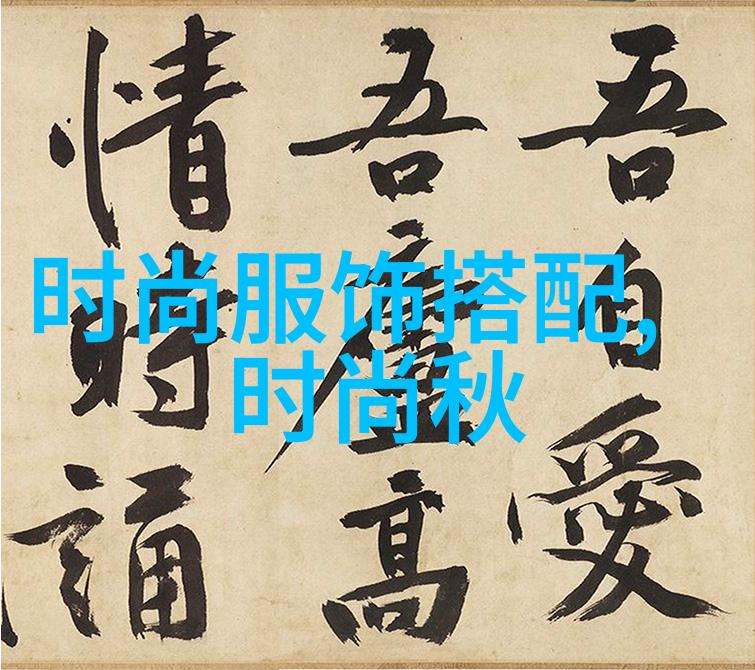 吾自愛
吾廬高
情時誦
时尚服饰搭配,
时尚秋